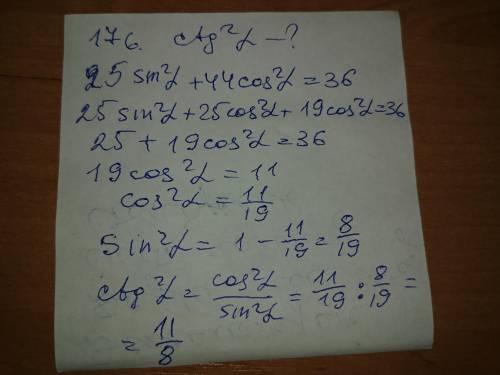 176. ctg²α – ?
25 sin²α + 44cos²α = 36
25 sin²α + 25cos²α + 19cos²α = 36
25 + 19cos²α = 36
19cos²α = 11
cos²α = 11/19
sin²α = 1 – 11/19 = 8/19
ctg²α = cos²α/sin²α = 11/19 : 8/19 =
= 11/8